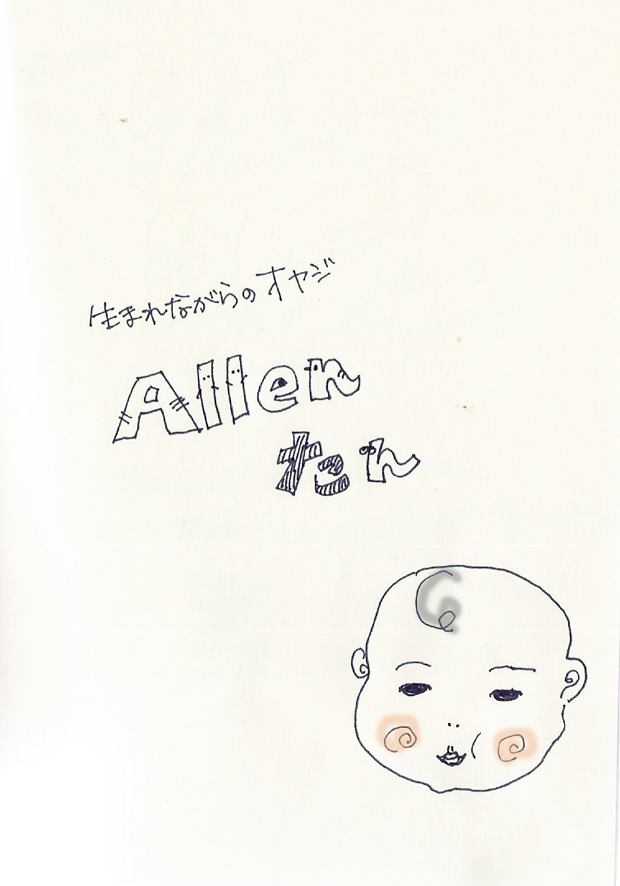 生まれながらのオヤジ
Allen
たん